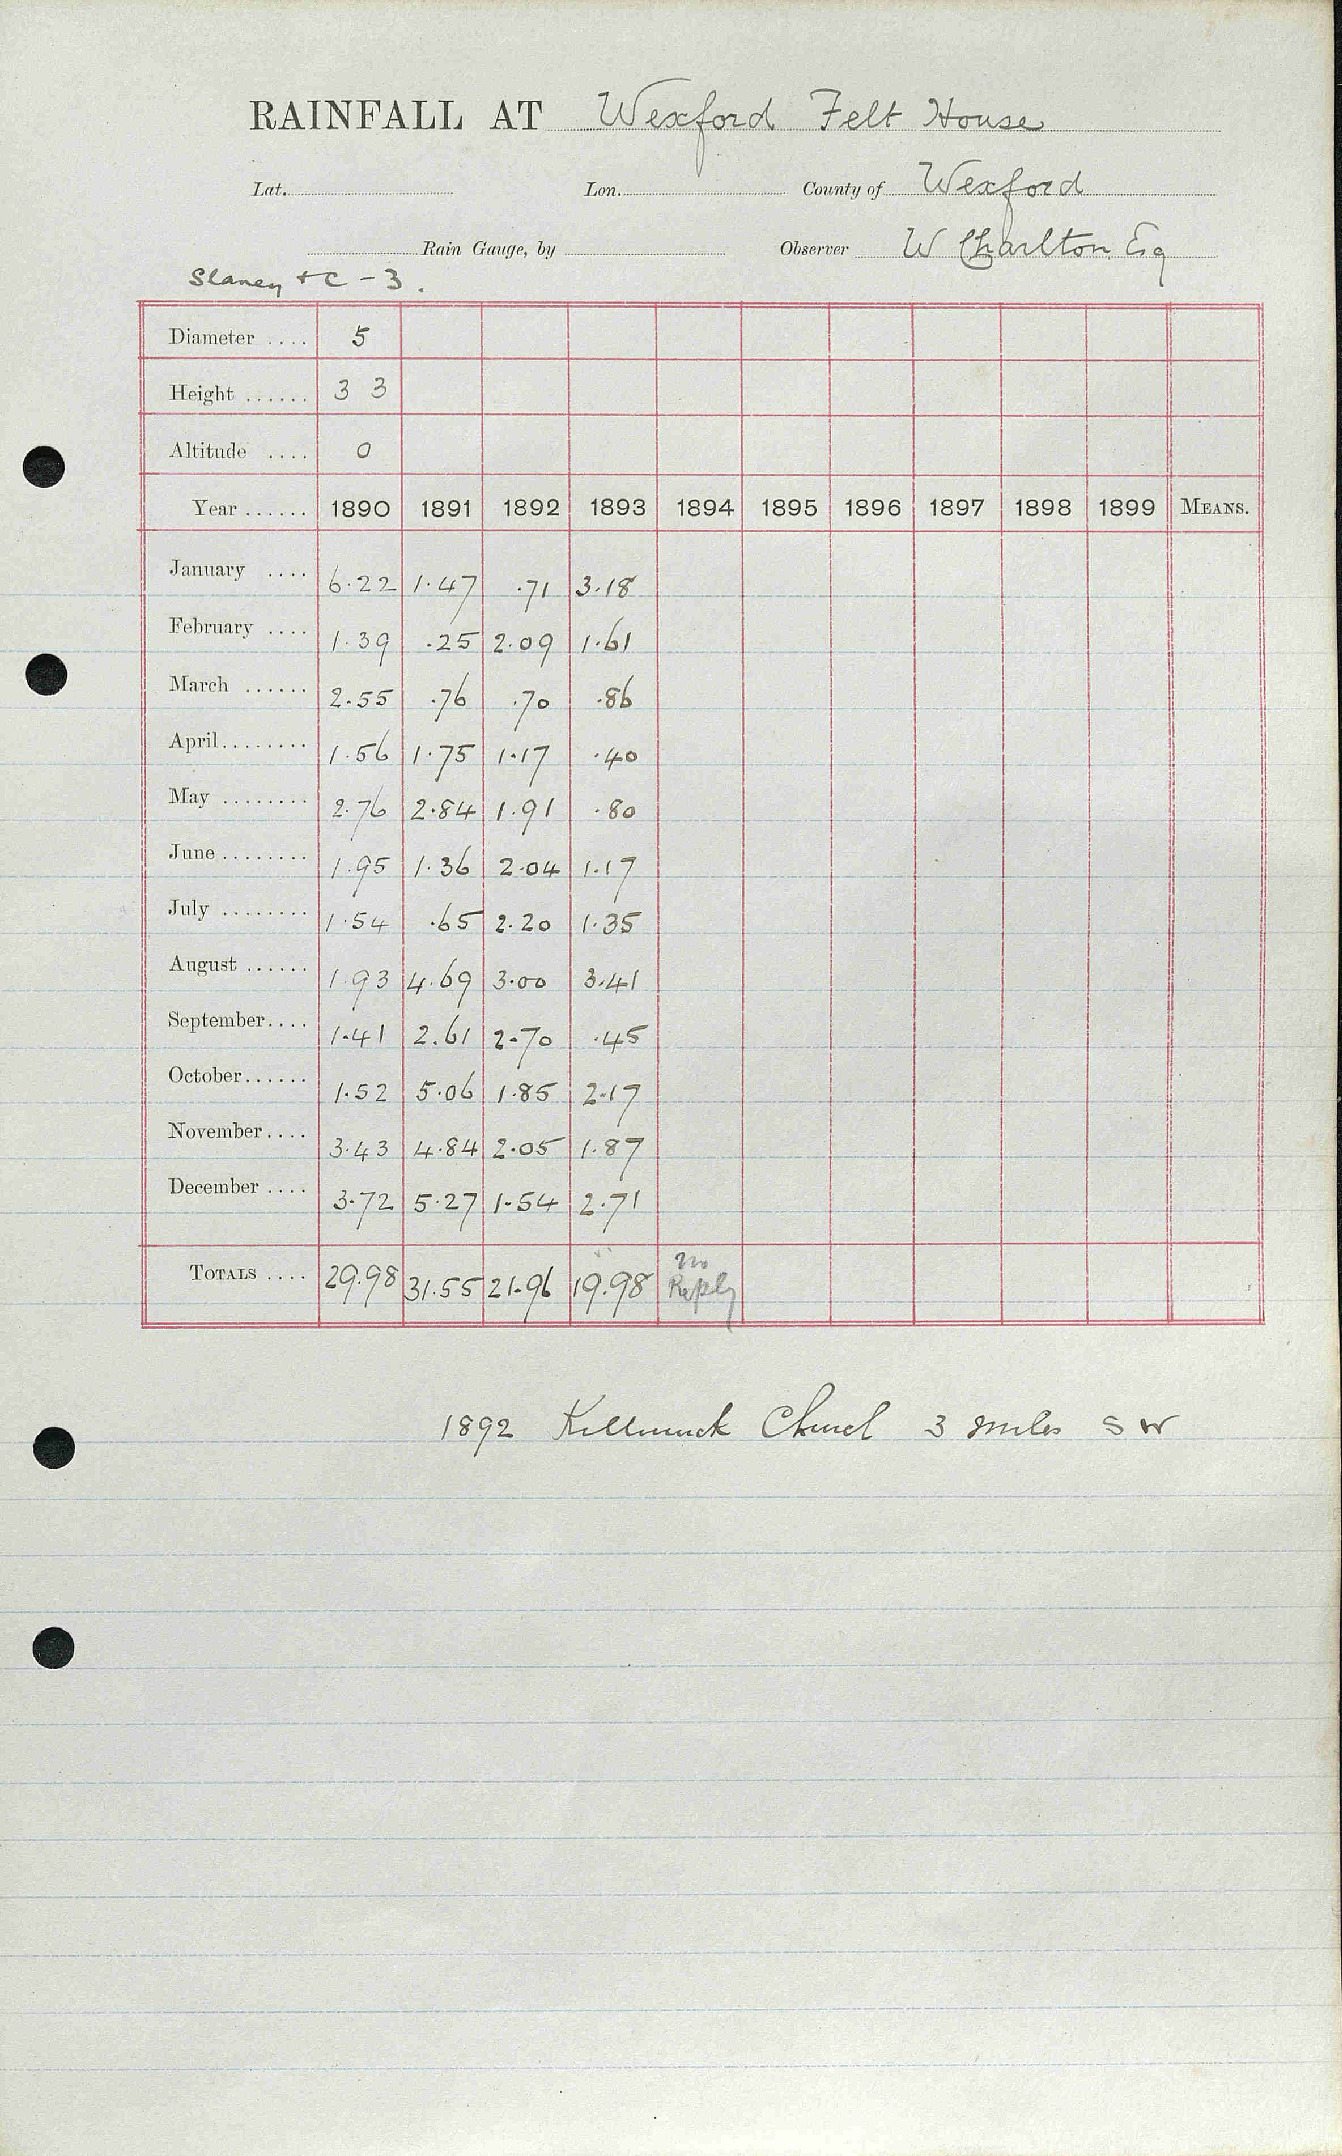 RAINFALL AT Wexford Felt House
Lat. Lon. County of Wexford
Rain Gauge, by Observer W Charlton Esq
Slaney + C - 3.
Diameter .... 5
Height ...... 3 3
Altitude .... 0
Year ...... 1890 1891 1892 1893 1894 1895 1896 1897 1898 1899 MEANS.
January .... 6.22 1.47 .71 3.18
February .... 1.39 .25 2.09 1.61
March ...... 2.55 .76 .70 .86
April........ 1.56 1.75 1.17 .40
May ........ 2.76 2.84 1.91 .80
June ........ 1.95 1.36 2.04 1.17
July ........ 1.54 .65 2.20 1.35
August ...... 1.93 4.69 3.00 3.41
September.... 1.41 2.61 2.70 .45
October...... 1.52 5.06 1.85 2.17
November.... 3.43 4.84 2.05 1.87
December .... 3.72 5.27 1.54 2.71
TOTALS .... 29.98 31.55 21.96 19.98 No Reply
1892 Church 3 miles S W